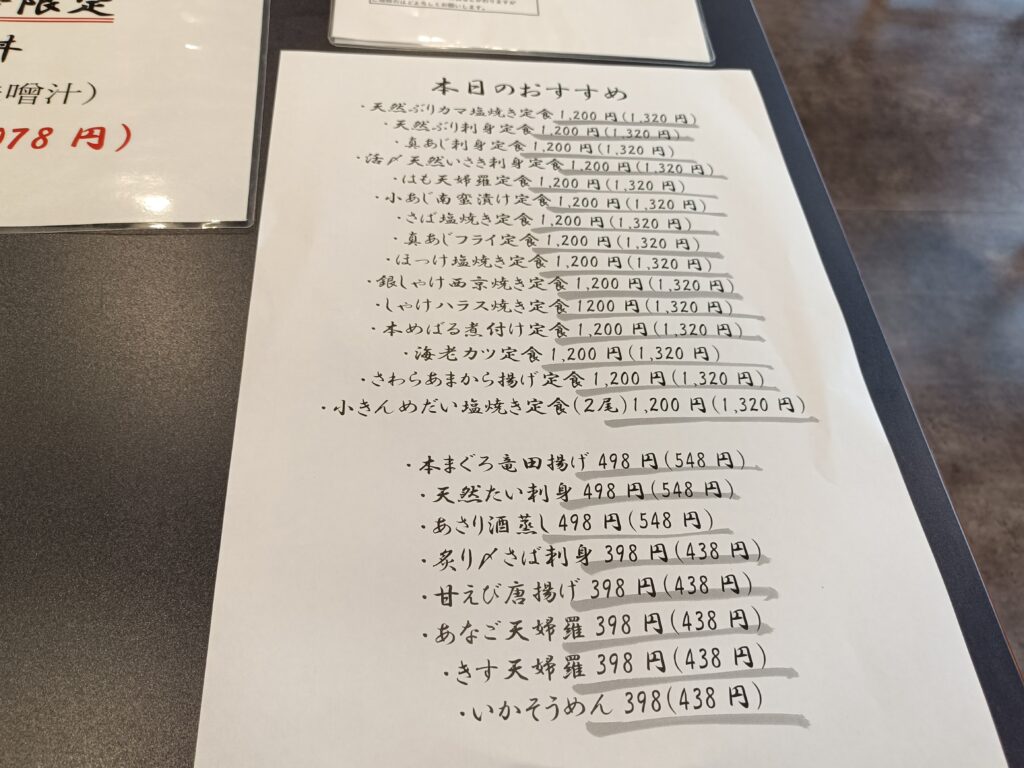 限定
丼
噌汁)
978 円)
本日のおすすめ
・天然ぶりカマ塩焼き定食 1,200 円(1,320 円)
・天然ぶり刺身定食 1,200 円(1,320 円)
・真あじ刺身定食 1,200 円(1,320 円)
・活〆天然いさき刺身定食 1,200 円(1,320 円)
・はも天婦羅定食 1,200 円(1,320 円)
・小あじ南蛮漬け定食 1,200 円(1,320 円)
・さば塩焼き定食 1,200 円(1,320 円)
・真あじフライ定食 1,200 円(1,320 円)
・ほっけ塩焼き定食 1,200 円(1,320 円)
・銀しゃけ西京焼き定食 1,200 円(1,320 円)
・しゃけハラス焼き定食 1200 円(1,320 円)
・本めばる煮付け定食 1,200 円(1,320 円)
・海老カツ定食 1,200 円(1,320 円)
・さわらあまから揚げ定食 1,200 円(1,320 円)
・小きんめだい塩焼き定食(2尾)1,200 円(1,320 円)
・本まぐろ竜田揚げ 498 円(548 円)
・天然たい刺身 498 円(548 円)
・あさり酒蒸し 498 円(548 円)
・炙り〆さば刺身 398 円(438 円)
・甘えび唐揚げ 398 円(438 円)
・あなご天婦羅 398 円(438 円)
・きす天婦羅 398 円(438 円)
・いかそうめん 398(438 円)